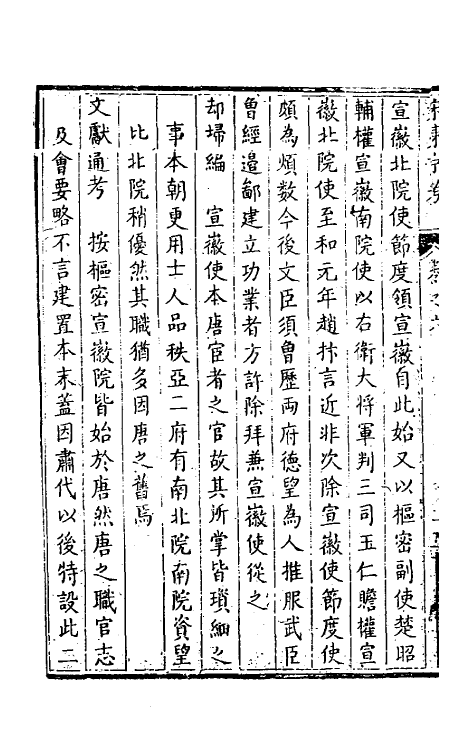 宣徽北院使節度領宣徽自此始又以樞密副使楚昭
輔權宣徽南院使以右衛大將軍判三司王仁贍權宣
徽北院使至和元年趙抃言近非次除宣徽使節度使
頗為煩數今後文臣須曾歷兩府德望為人推服武臣
曾經邉鄙建立功業者方許除拜兼宣徽使從之
却掃編　宣徽使本唐宦者之官故其所掌皆瑣細之
事本朝更用士人品秩亞二府有南北院南院資望
比北院稍優然其職猶多因唐之舊焉
文獻通考　按樞密宣徽院皆始於唐然唐之職官志
及會要略不言建置本末蓋因肅代以後特設此二